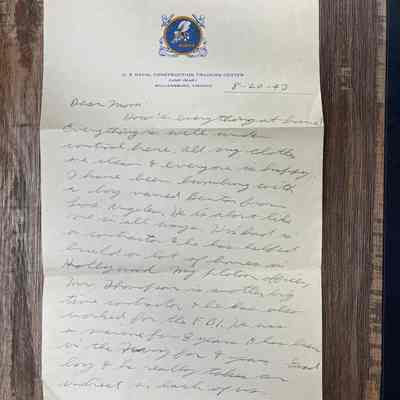 U. S. NAVAL CONSTRUCTION TRAINING CENTER
CAMP PEARY
WILLIAMSBURG, VIRGINIA
8-20-43
Dear Mom
How's everything at home?
Everything is well under
control here. All my clothes
are clean & everyone is happy.
I have been bunking with
a boy named Benton from
Los Angeles. He is about like
me in all ways. His dad is
a contractor & he has helped
build a lot of homes in
Hollywood. My platoon officer,
Mr. Thompson is another big
time contractor & he has also
worked for the F.B.I. He was
a marine for 8 years & has been
in the Navy for 4 years. Good
boy & he really takes an
interest in each of us